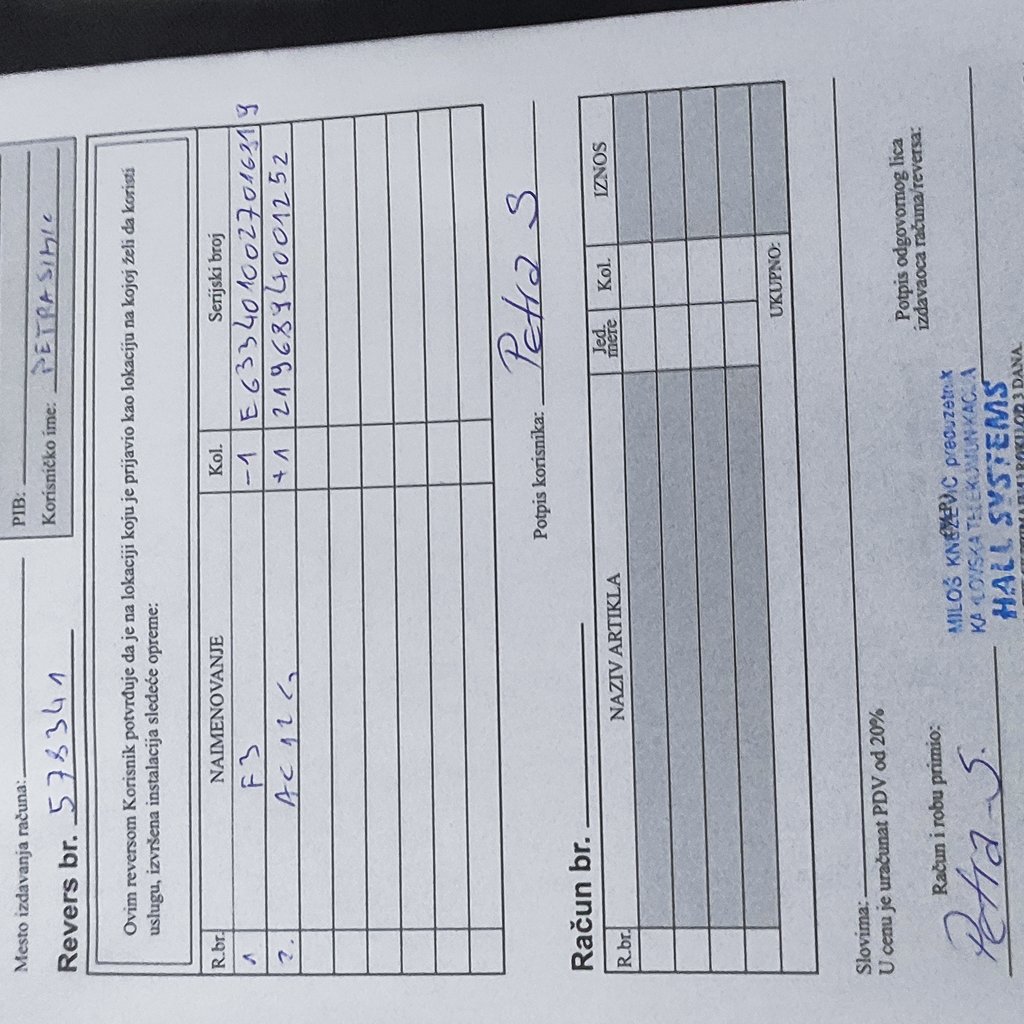 PIB:
Mesto izdavanja računa:
Korisničko ime: PETRASIMIC
Revers br. 578341
Ovim reversom Korisnik potvrđuje da je na lokaciji koju je prijavio kao lokaciju na kojoj želi da koristi
uslugu, izvršena instalacija sledeće opreme:
R.br. NAIMENOVANJE Kol. Serijski broj
1 F3 -1 E6334010027016319
2. AC12G +1 2196894001252
Potpis korisnika: Petra S
Račun br.
R.br. NAZIV ARTIKLA Jed. mere Kol. IZNOS
UKUPNO:
Slovima:
U cenu je uračunat PDV od 20%
Račun i robu primio:
Potpis odgovornog lica
izdavaoca računa/reversa:
Petra S.
(M.P.)
MILOŠ KNEŽEVIĆ preduzetnik
KABLOVSKA TELEKOMUNIKACIJA
HALL SYSTEMS
ROKU OD 3 DANA.